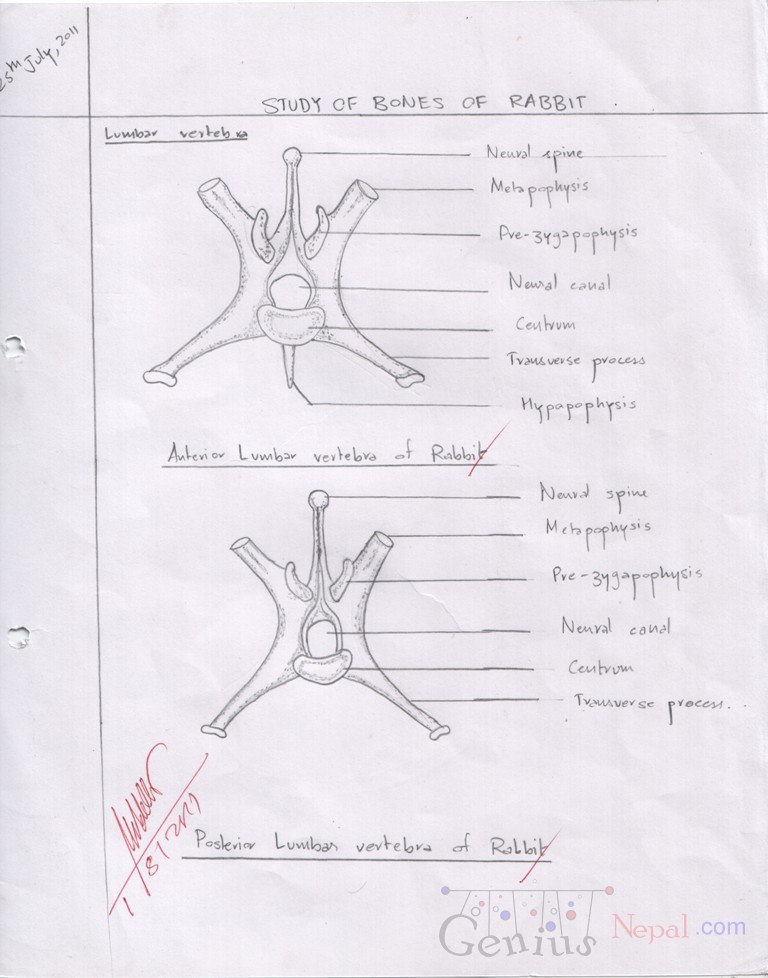 25th July, 2011
STUDY OF BONES OF RABBIT
Lumbar vertebra
Neural spine
Metapophysis
Pre-zygapophysis
Neural canal
Centrum
Transverse process
Hypapophysis
Anterior Lumbar vertebra of Rabbit
Neural spine
Metapophysis
Pre-zygapophysis
Neural canal
Centrum
Transverse process.
Posterior Lumbar vertebra of Rabbit
Genius Nepal.com